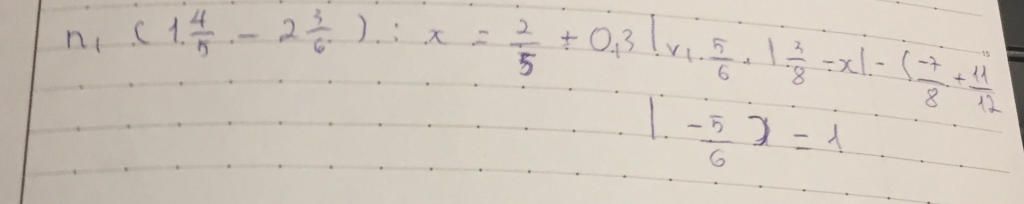 n, (1 4/5 - 2 3/6) : x = 2/5 + 0,3
v, 5/6 . |3/8 - x| - (-7/8 + 11/12
-5/6) = 1